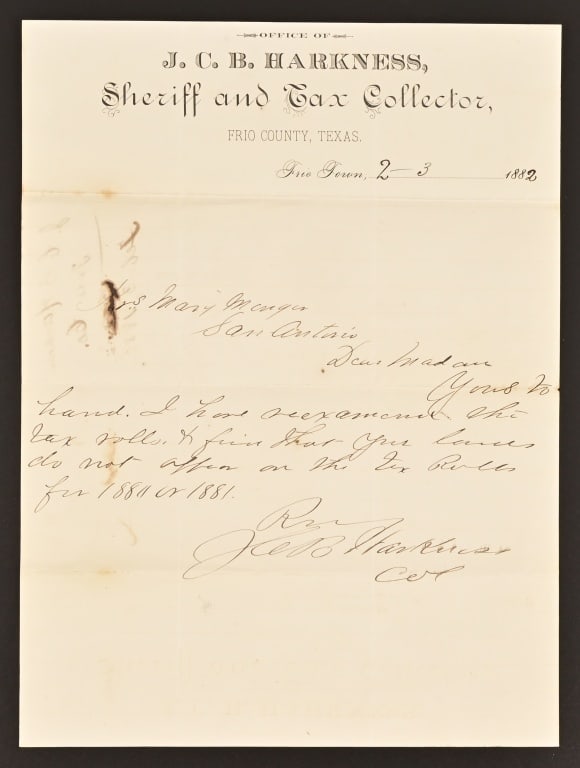 OFFICE OF
J. C. B. HARKNESS,
Sheriff and Tax Collector,
FRIO COUNTY, TEXAS.
Frio Town, 2-3 1882
Mrs Mary Menger
San Antonio
Dear Madam
Yours to
hand. I have reexamined the
tax rolls. & find that your lands
do not appear on the Tax Rolls
for 1880 or 1881.
JCB Harkness
Col